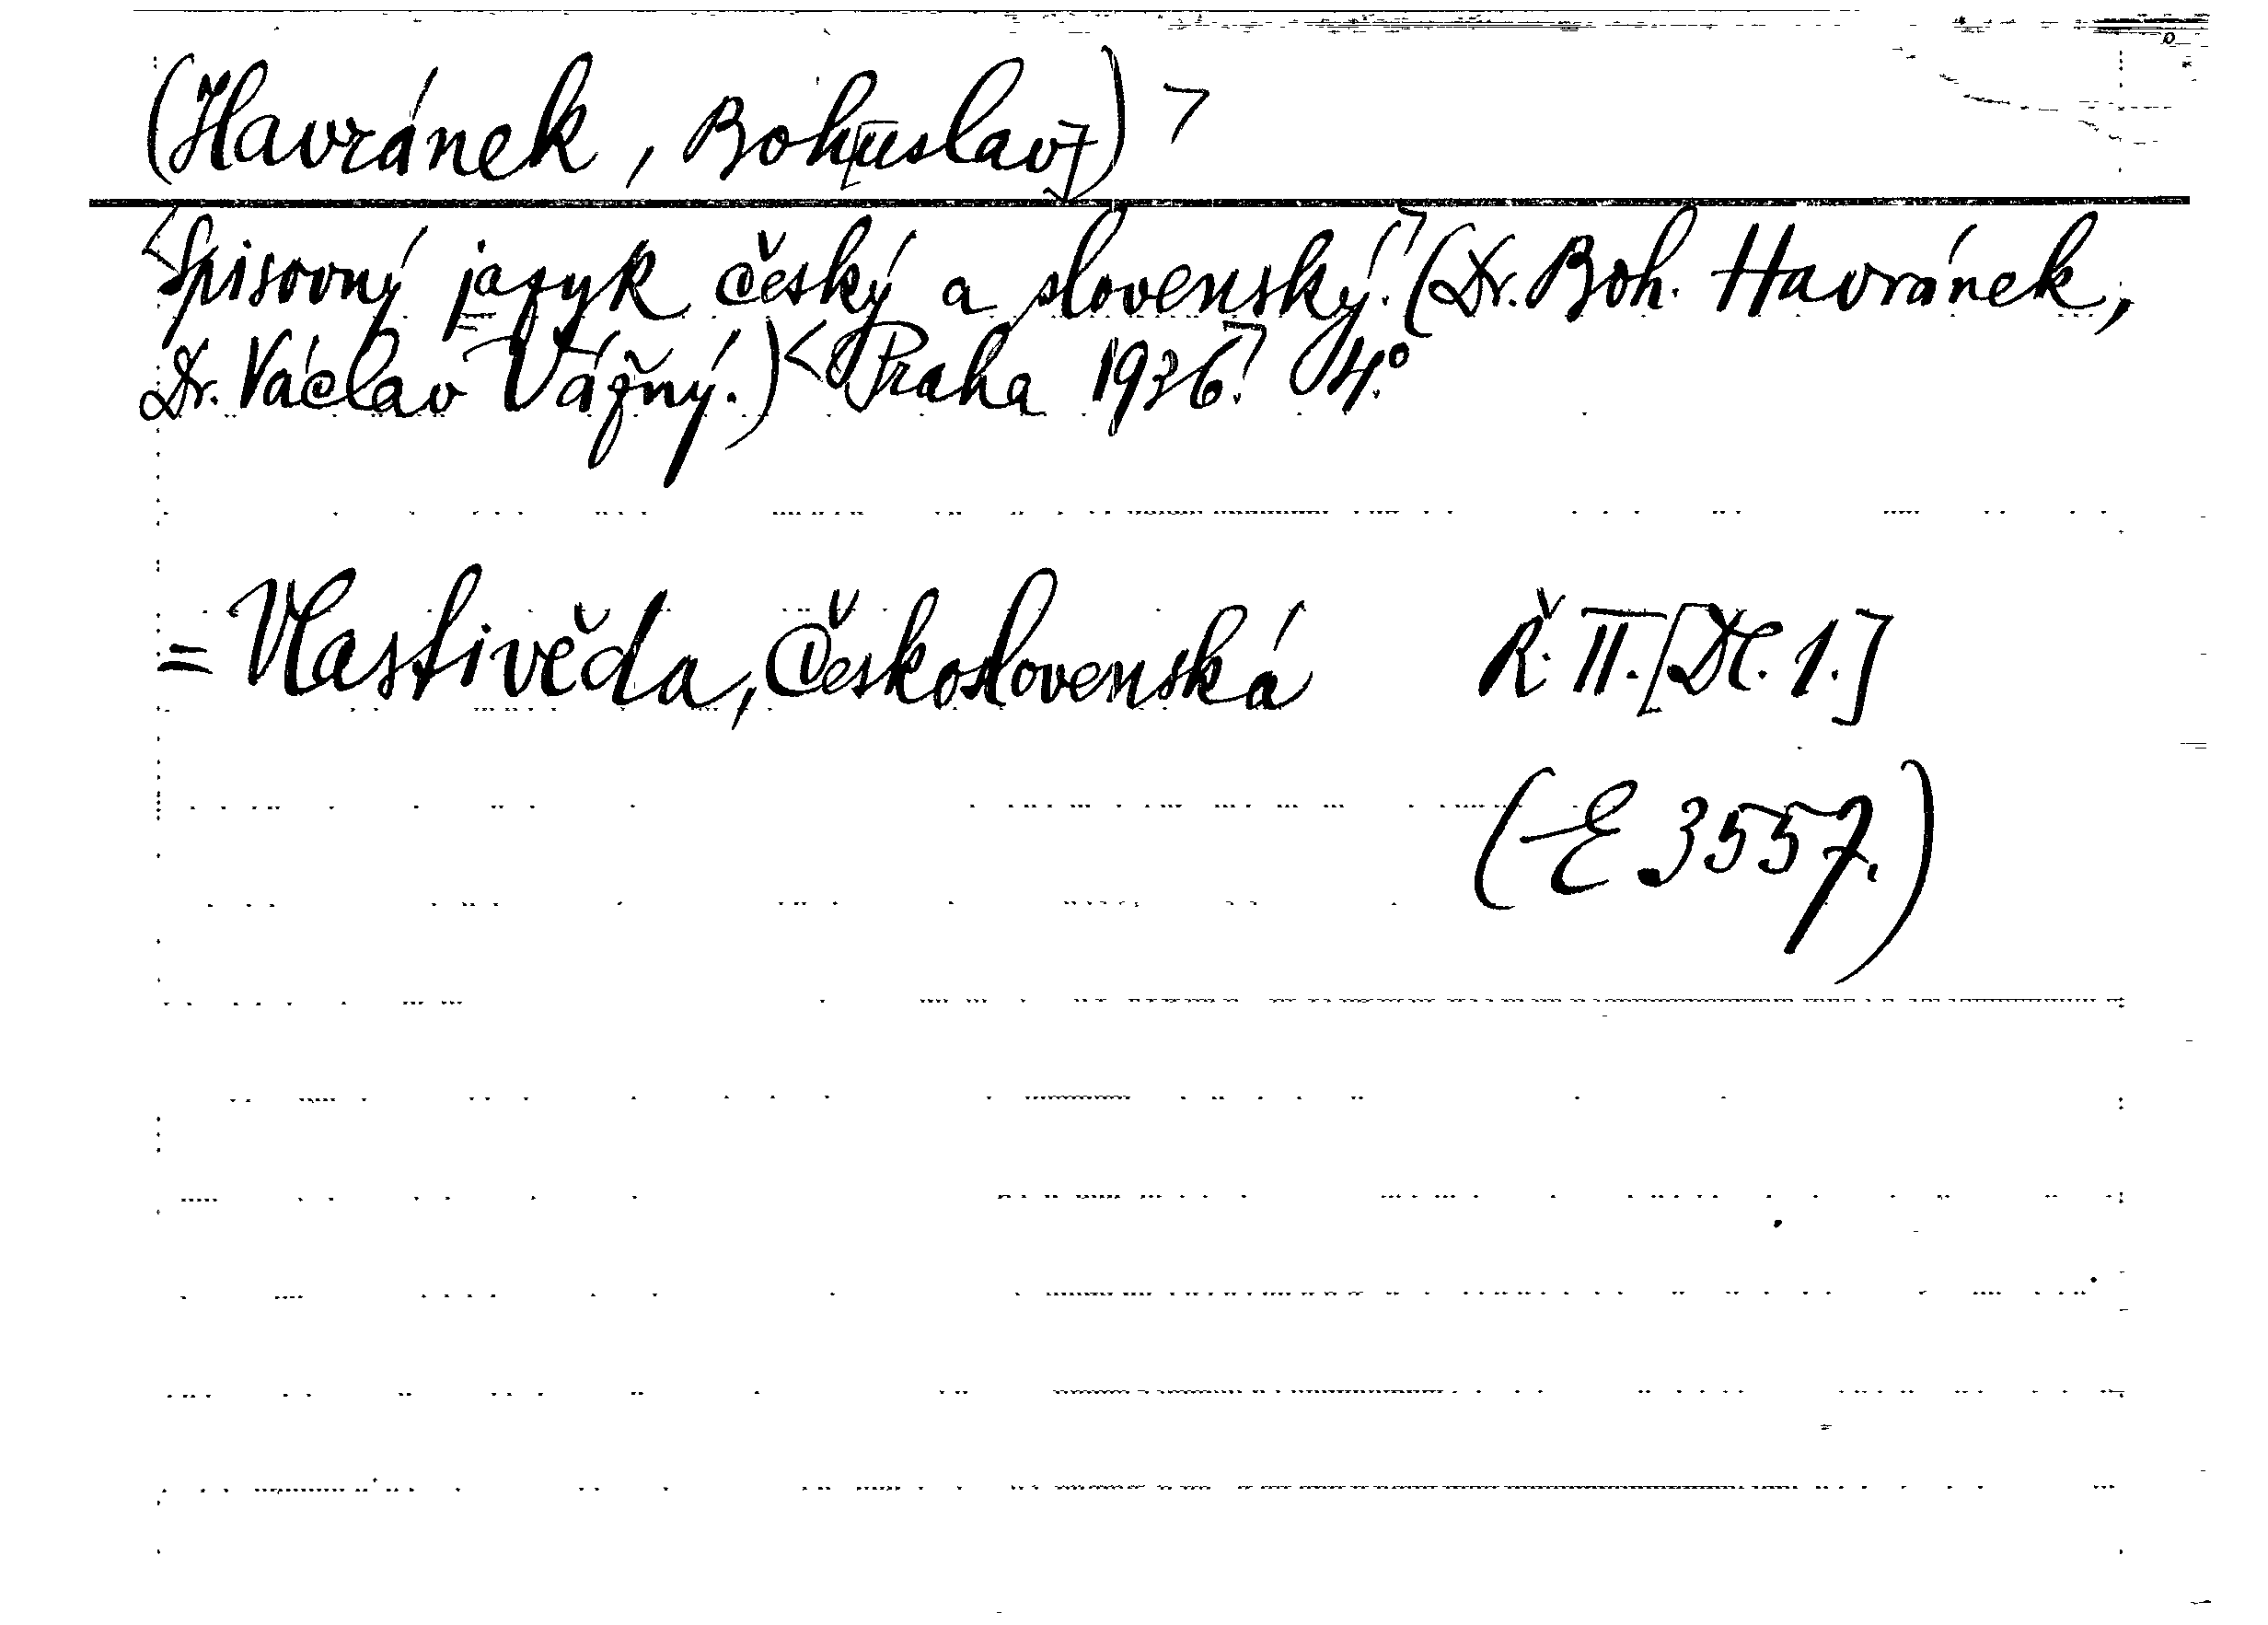 (Havránek, Boh[uslav])>
<Spisovný jazyk český a slovenský.> (Dr. Boh. Havránek,
Dr. Václav Vážný.) <Praha 1936.> 4.°
= Vlastivěda, Československá Ř. II. [Dl. 1.]
(E 3557.)